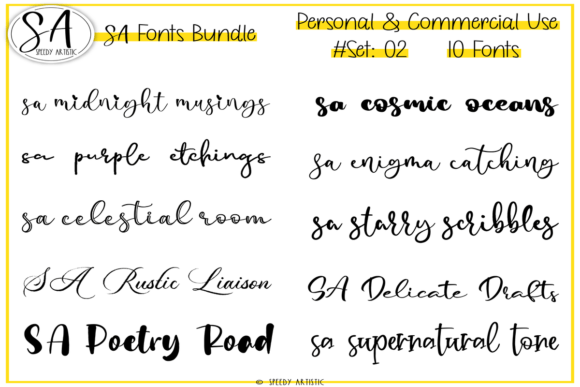 SA
SPEEDY ARTISTIC
SA Fonts Bundle
Personal & Commercial Use
#Set: 02
10 Fonts
sa midnight musings
sa cosmic oceans
sa purple etchings
sa enigma catching
sa celestial room
sa starry scribbles
SA Rustic Liaison
SA Delicate Drafts
SA Poetry Road
sa supernatural tone
© SPEEDY ARTISTIC